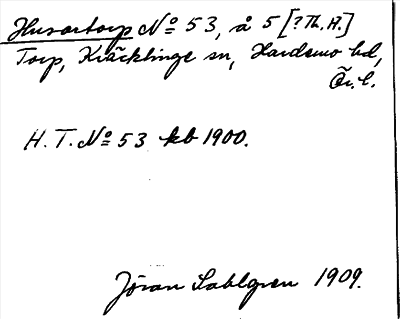 Husartorp No 53, å 5 [? Th. H.]
Torp, Kräcklinge sn, Hardemo hd,
Ör. l.
H. T. No 53 kb 1900.
Jöran Sahlgren 1909.